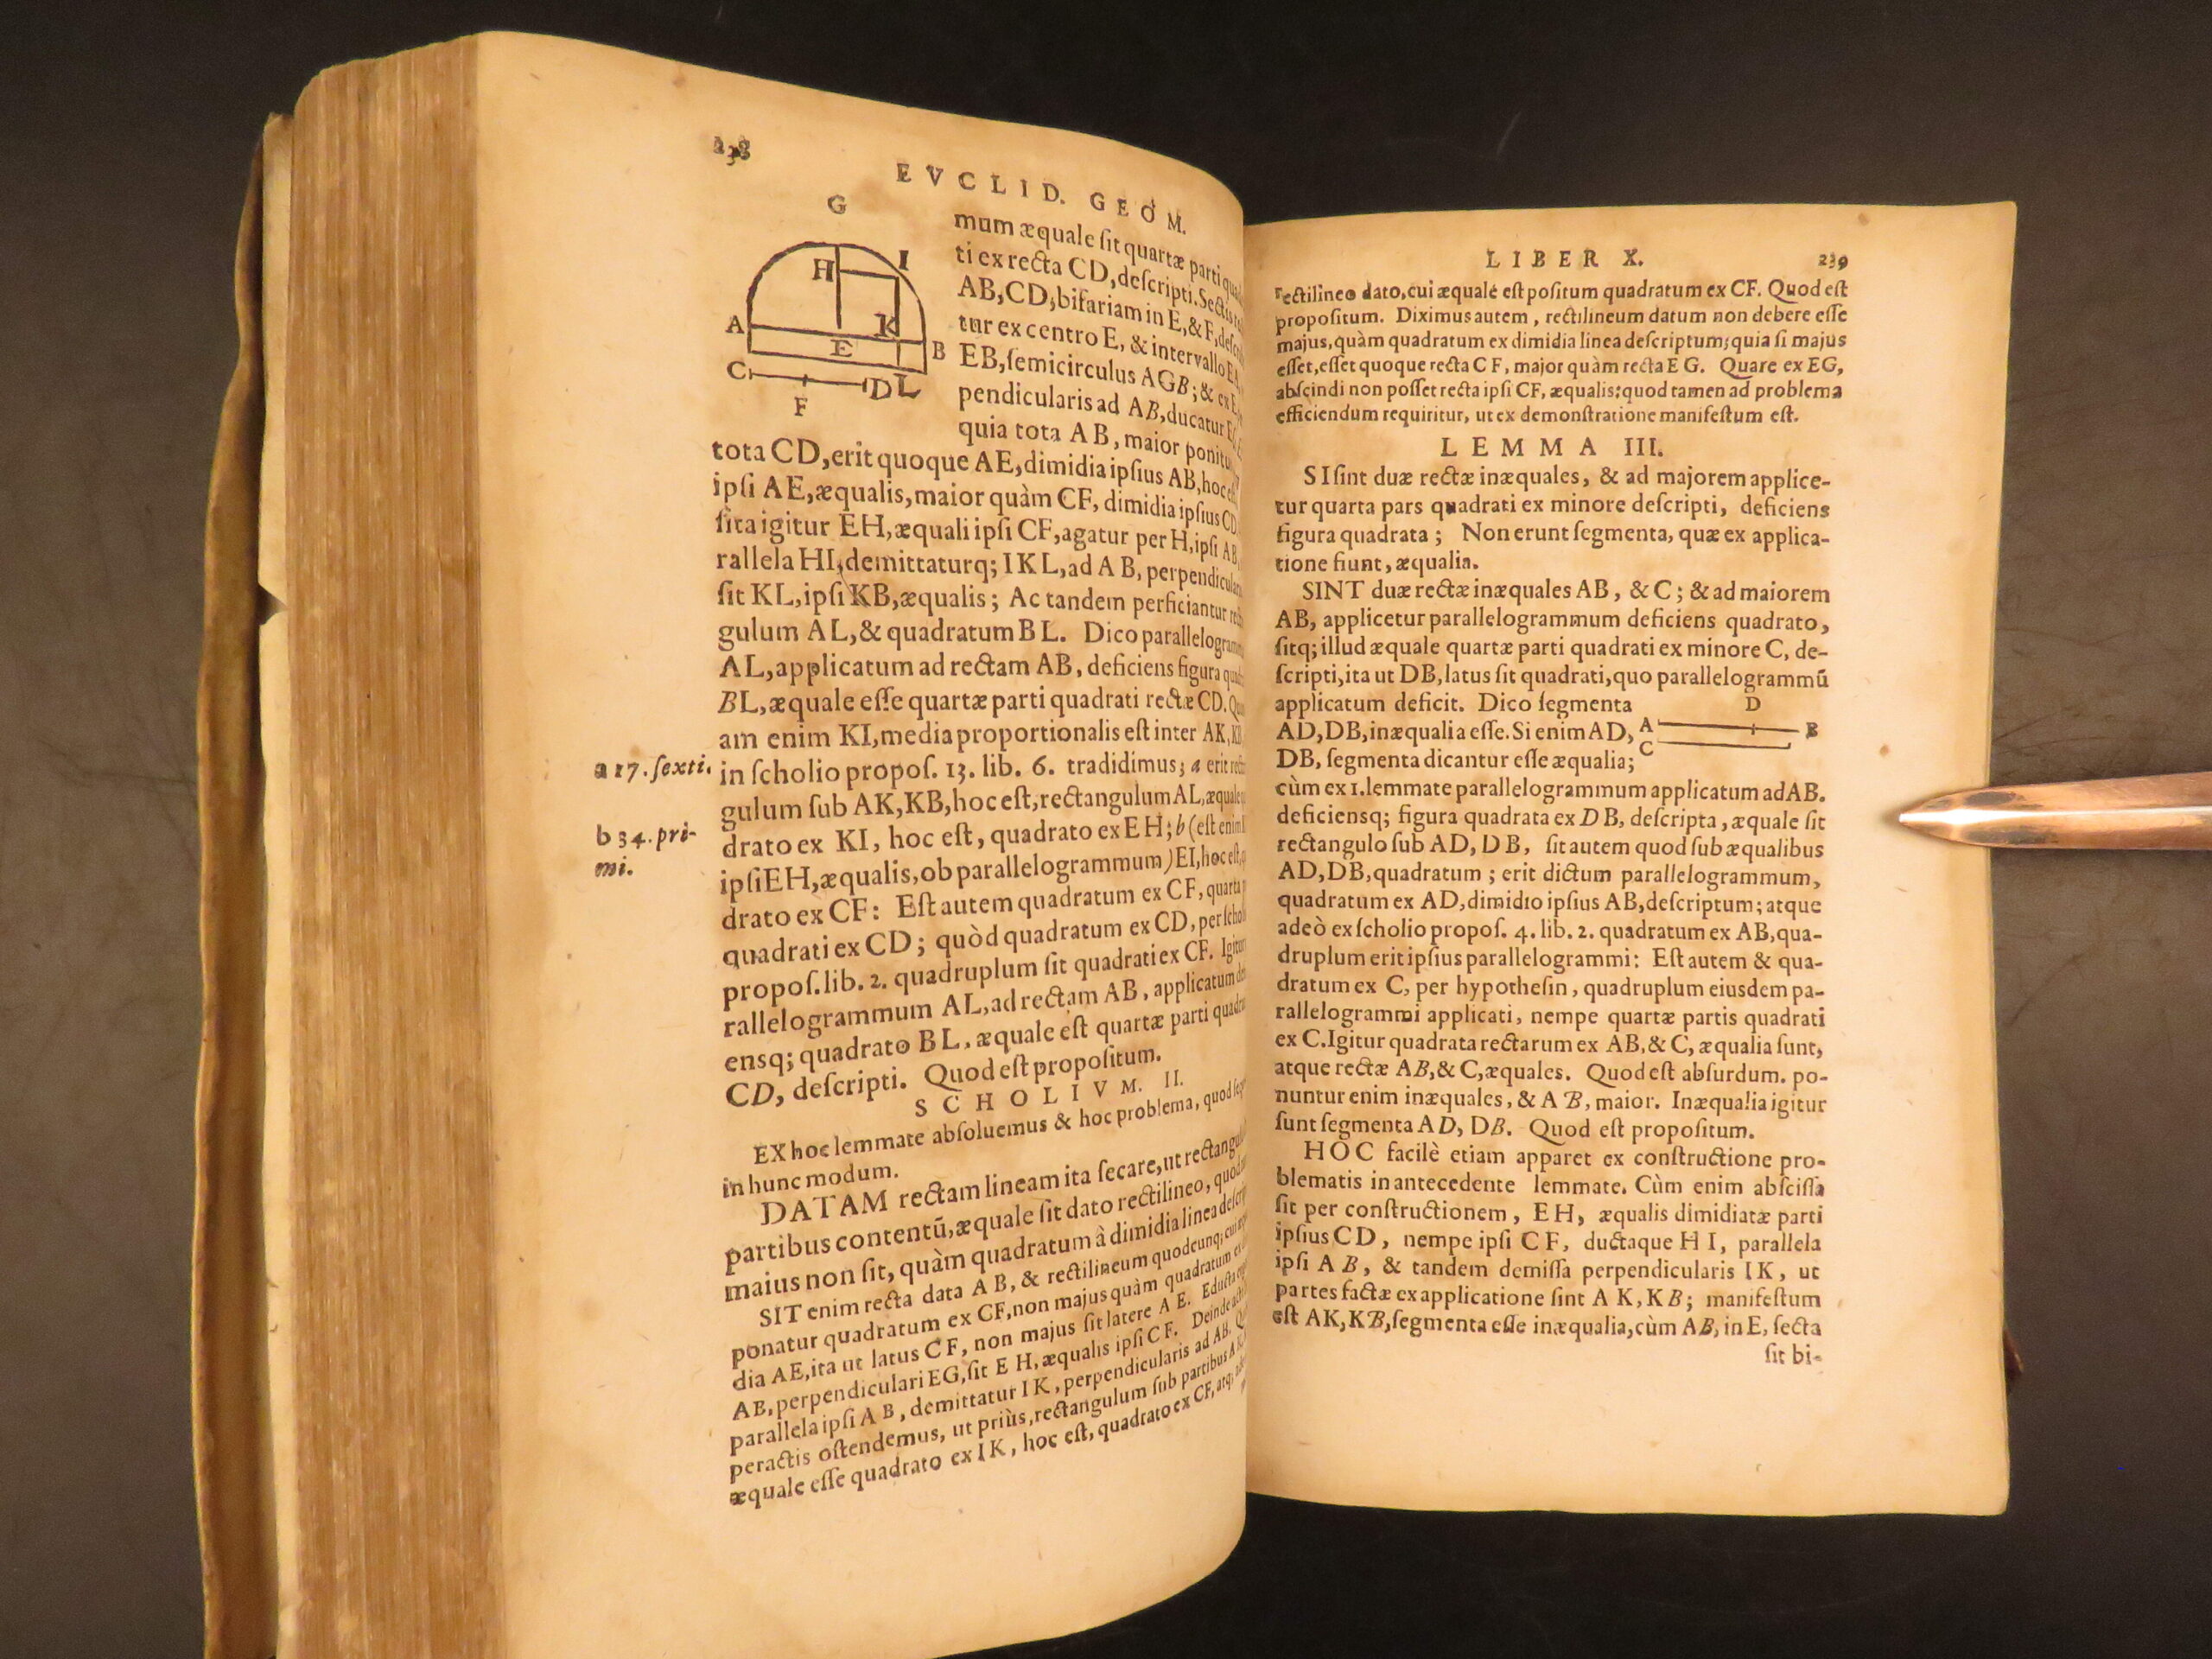 238
EVCLID. GEOM.
G
H
I
A
K
E
B
C
D
L
F
mum æquale ſit quartæ parti
ti ex recta CD, deſcripti. Sectis
AB, CD, bifariam in E, & F,
tur ex centro E, & intervallo EA,
EB, ſemicirculus AGB; & ex E,
pendicularis ad AB, ducatur
quia tota AB, maior
tota CD, erit quoque AE, dimidia ipſius AB, hoc
ipſi AE, æqualis, maior quàm CF, dimidia ipſius CD
ſita igitur EH, æquali ipſi CF, agatur per H, ipſi AB,
rallela HI, demittaturq; IKL, ad AB,
ſit KL, ipſi KB, æqualis; Ac tandem perficiantur
gulum AL, & quadratum BL. Dico
AL, applicatum ad rectam AB, deficiens figura
BL, æquale eſſe quartæ parti quadrati rectæ CD.
am enim KI, media proportionalis eſt inter AK,
a 17. ſexti.
in ſcholio propoſ. 13. lib. 6. tradidimus; a erit
gulum ſub AK, KB, hoc eſt, rectangulum AL,
b 34. pri-
mi.
drato ex KI, hoc eſt, quadrato ex EH; b (eſt enim
ipſi EH, æqualis, ob parallelogrammum) EI, hoc eſt,
drato ex CF: Eſt autem quadratum ex CF,
quadrati ex CD; quòd quadratum ex CD, per
propoſ. lib. 2. quadruplum ſit quadrati ex CF.
rallelogrammum AL, ad rectam AB, applicatum
ensq; quadrato BL, æquale eſt quartæ parti
CD, deſcripti. Quod eſt propoſitum.
SCHOLIVM. II.
EX hoc lemmate abſoluemus & hoc problema, quod
in hunc modum.
DATAM rectam lineam ita ſecare, ut
partibus contentū, æquale ſit dato rectilineo,
maius non ſit, quàm quadratum à dimidia linea
SIT enim recta data AB, & rectilineum quodcunq;
ponatur quadratum ex CF, non majus quàm quadratum
dia AE, ita ut latus CF, non majus ſit latere AE.
AB, perpendiculari EG, ſit EH, æqualis ipſi CF. Deinde
parallela ipſi AB, demittatur IK, perpendicularis ad AB.
peractis oſtendemus, ut priùs, rectangulum ſub partibus
æquale eſſe quadrato ex IK, hoc eſt, quadrato ex CF,
LIBER X.
239
rectilineo dato, cui æquale eſt poſitum quadratum ex CF. Quod eſt
propoſitum. Diximus autem, rectilineum datum non debere eſſe
majus, quàm quadratum ex dimidia linea deſcriptum; quia ſi majus
eſſet, eſſet quoque recta CF, major quàm recta EG. Quare ex EG,
abſcindi non poſſet recta ipſi CF, æqualis: quod tamen ad problema
efficiendum requiritur, ut ex demonſtratione manifeſtum eſt.
LEMMA III.
SI ſint duæ rectæ inæquales, & ad majorem applice-
tur quarta pars quadrati ex minore deſcripti, deficiens
figura quadrata; Non erunt ſegmenta, quæ ex applica-
tione fiunt, æqualia.
SINT duæ rectæ inæquales AB, & C; & ad maiorem
AB, applicetur parallelogrammum deficiens quadrato,
ſitq; illud æquale quartæ parti quadrati ex minore C, de-
ſcripti, ita ut DB, latus ſit quadrati, quo parallelogrammū
applicatum deficit. Dico ſegmenta
AD, DB, inæqualia eſſe. Si enim AD,
DB, ſegmenta dicantur eſſe æqualia;
D
A
B
C
cùm ex 1. lemmate parallelogrammum applicatum ad AB.
deficiensq; figura quadrata ex DB, deſcripta, æquale ſit
rectangulo ſub AD, DB, ſit autem quod ſub æqualibus
AD, DB, quadratum; erit dictum parallelogrammum,
quadratum ex AD, dimidio ipſius AB, deſcriptum; atque
adeò ex ſcholio propoſ. 4. lib. 2. quadratum ex AB, qua-
druplum erit ipſius parallelogrammi: Eſt autem & qua-
dratum ex C, per hypotheſin, quadruplum eiusdem pa-
rallelogrammi applicati, nempe quartæ partis quadrati
ex C. Igitur quadrata rectarum ex AB, & C, æqualia ſunt,
atque rectæ AB, & C, æquales. Quod eſt abſurdum. po-
nuntur enim inæquales, & AB, maior. Inæqualia igitur
ſunt ſegmenta AD, DB. Quod eſt propoſitum.
HOC facilè etiam apparet ex conſtructione pro-
blematis in antecedente lemmate. Cùm enim abſciſſa
ſit per conſtructionem, EH, æqualis dimidiatæ parti
ipſius CD, nempe ipſi CF, ductaque HI, parallela
ipſi AB, & tandem demiſſa perpendicularis IK, ut
partes factæ ex applicatione ſint AK, KB; manifeſtum
eſt AK, KB, ſegmenta eſſe inæqualia, cùm AB, in E, ſecta
ſit bi-